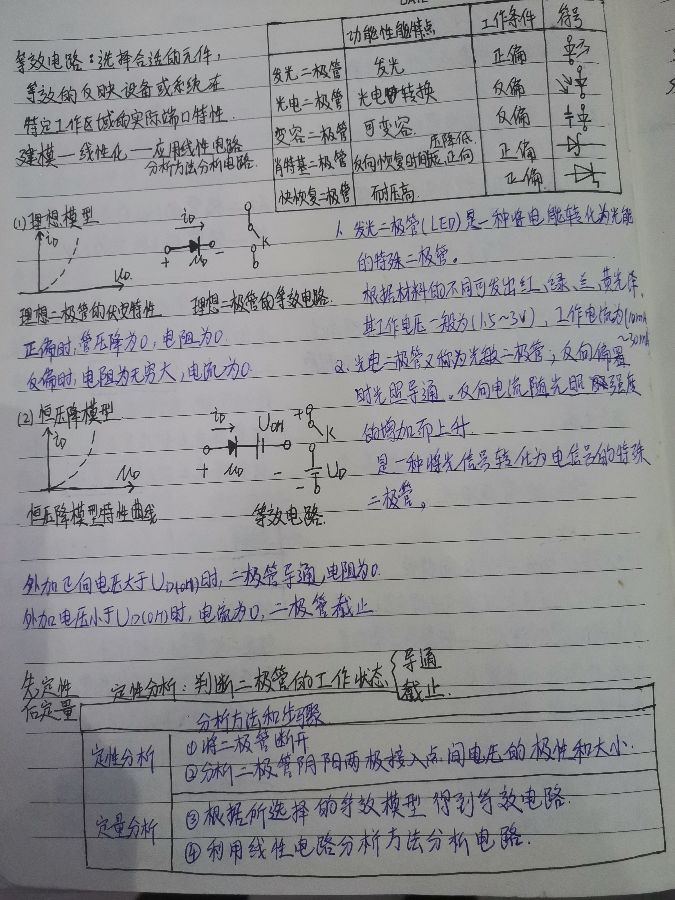 等效电路：选择合适的元件，
等效的反映设备或系统在
特定工作区域的实际端口特性.
建模—线性化—应用线性电路
分析方法分析电路.
功能性能特点 工作条件 符号
发光二极管 发光 正偏
光电二极管 光电转换 反偏
变容二极管 可变容. 反偏
肖特基二极管 反向恢复时间短,正向压降低. 正偏
快恢复二极管 耐压高. 正偏
(1) 理想模型
iD
uD
iD
+ uD -
K
理想二极管的伏安特性 理想二极管的等效电路.
正偏时,管压降为0,电阻为0.
反偏时,电阻为无穷大,电流为0.
(2) 恒压降模型
iD
uD
iD UON
+ uD -
+ K
- UD
恒压降模型特性曲线 等效电路.
1. 发光二极管(LED)是一种将电能转化为光能
的特殊二极管。
根据材料的不同可发出红、绿、兰、黄光等,
其工作电压一般为(1.5~3V), 工作电流为(10mA
~30mA
2. 光电二极管又称为光敏二极管, 反向偏置
时光照导通。反向电流随光照强度
的增加而上升.
是一种将光信号转化为电信号的特殊
二极管。
外加正向电压大于UD(on)时,二极管导通,电阻为0.
外加电压小于UD(on)时,电流为0,二极管截止.
先定性
后定量
定性分析：判断二极管的工作状态 导通
截止.
分析方法和步骤
定性分析 ①将二极管断开
②分析二极管阴阳两极接入点间电压的极性和大小.
定量分析 ③根据所选择的等效模型得到等效电路.
④利用线性电路分析方法分析电路.